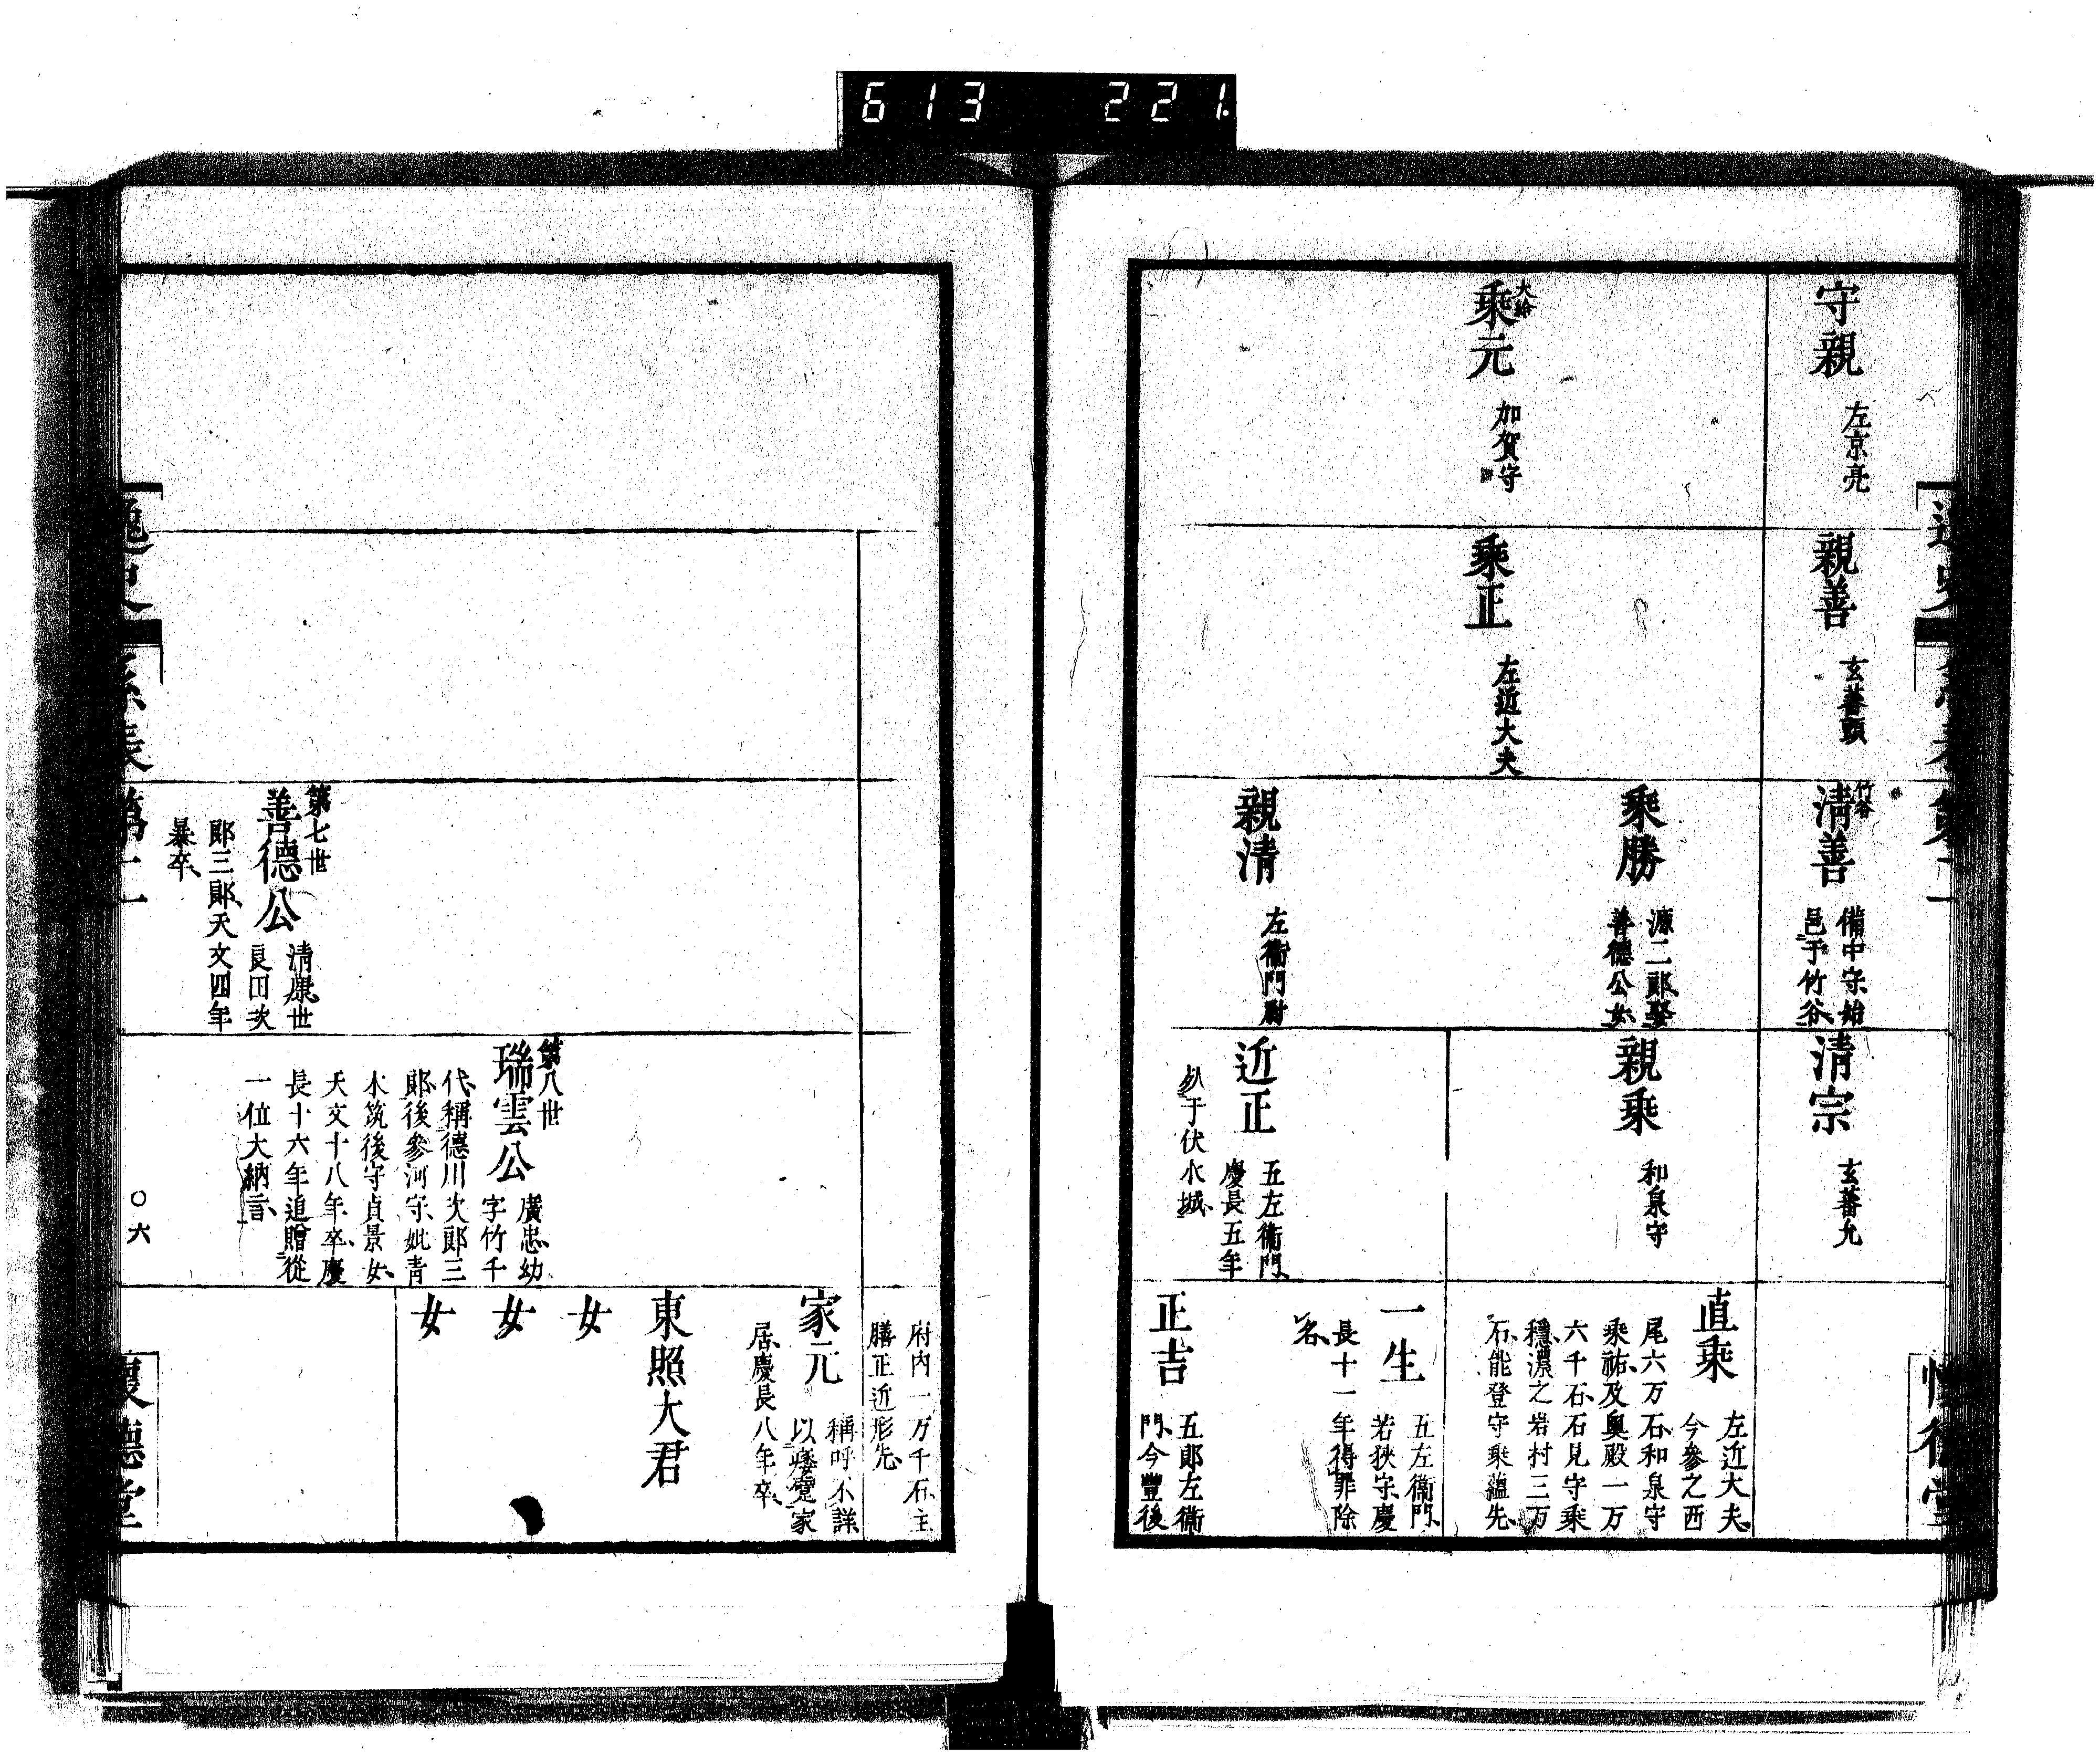 613 221.
守親 左京亮
親善 玄蕃頭
竹谷
清善 備中守、始
邑于竹谷、
清宗 玄蕃允
大給
乘元 加賀守
乘正 左近大夫
乘勝 源二郎、娶
善德公女、
親乘 和泉守
直乘 左近大夫、
今參之西
尾六万石、和泉守
乘祐、及奥殿一万
六千石、石見守乘
穩、濃之岩村三万
石、能登守乘蘊先、
親清 左衞門尉
近正 五左衞門、
慶長五年
于伏水城、
一生 五左衞門、
若狹守、慶
長十一年得罪除
名、
正吉 五郎左衞
門、今豐後
府内一万千石、主
膳正近形先、
家元 稱呼不詳、
以痿躄家
居、慶長八年卒、
東照大君
女
女
女
第八世
瑞雲公 廣忠、幼
字竹千
代、稱德川次郎三
郎、後參河守、妣青
木筑後守貞景女、
天文十八年卒、慶
長十六年追贈從
一位大納言、
第七世
善德公 清康、世
良田次
郎三郎、天文四年
暴卒、
逸史 系表第二
〇六
懷德堂